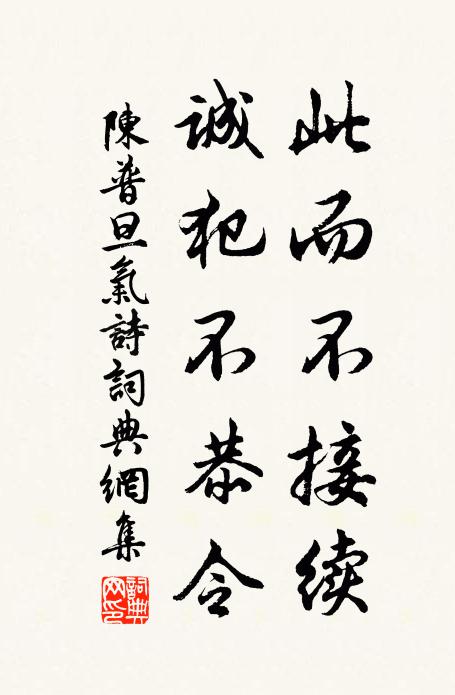 此而不接续
诚犯不恭令
陳普旦氣詩詞典網集
詞典網印